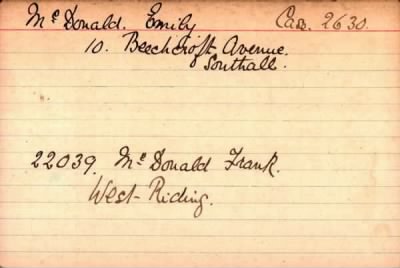 McDonald. Emily Cas. 2630.
10. Beechcroft Avenue.
Southall.
22039. McDonald Frank.
West-Riding.